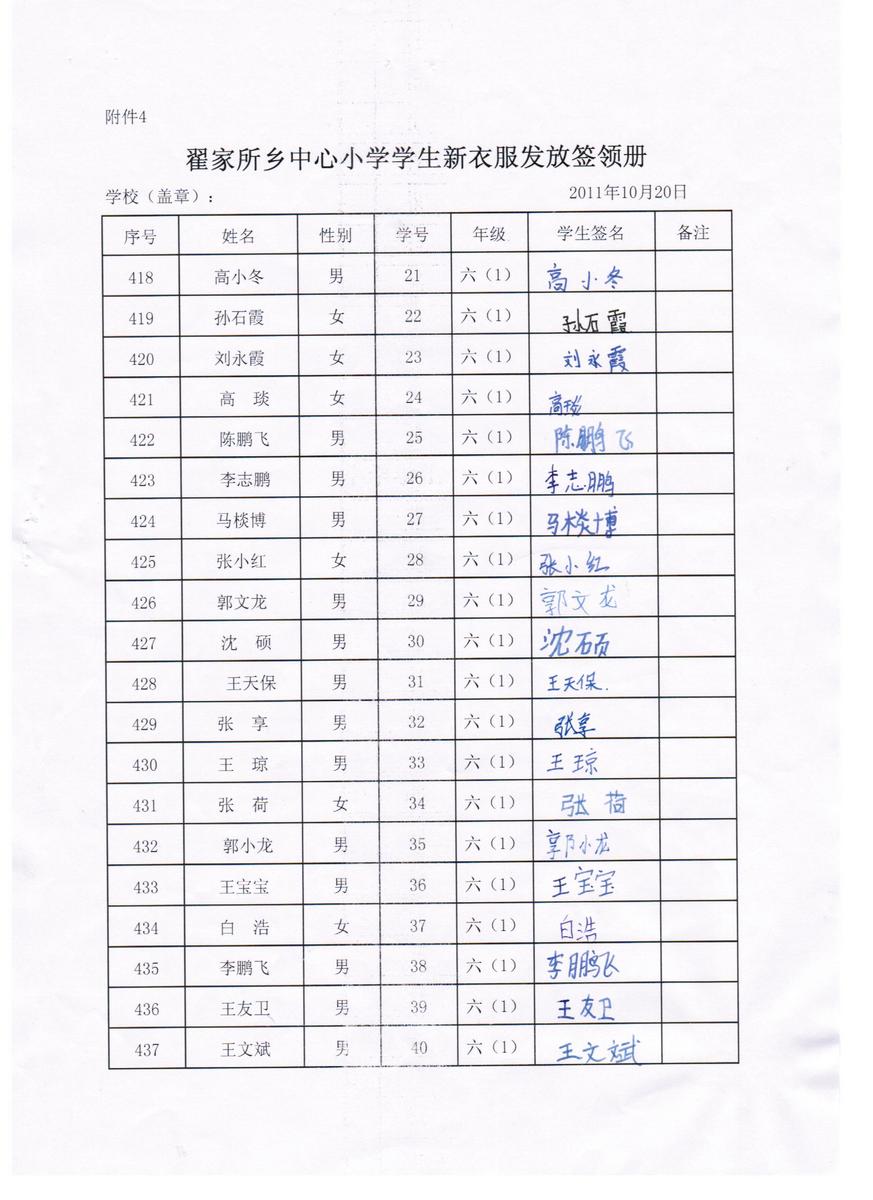 附件4
翟家所乡中心小学学生新衣服发放签领册
学校（盖章）： 2011年10月20日
序号 姓名 性别 学号 年级 学生签名 备注
418 高小冬 男 21 六（1） 高小冬
419 孙石霞 女 22 六（1） 孙石霞
420 刘永霞 女 23 六（1） 刘永霞
421 高 琰 女 24 六（1） 高琰
422 陈鹏飞 男 25 六（1） 陈鹏飞
423 李志鹏 男 26 六（1） 李志鹏
424 马棪博 男 27 六（1） 马棪博
425 张小红 女 28 六（1） 张小红
426 郭文龙 男 29 六（1） 郭文龙
427 沈 硕 男 30 六（1） 沈硕
428 王天保 男 31 六（1） 王天保.
429 张 享 男 32 六（1） 张享
430 王 琼 男 33 六（1） 王琼
431 张 荷 女 34 六（1） 张荷
432 郭小龙 男 35 六（1） 郭小龙
433 王宝宝 男 36 六（1） 王宝宝
434 白 浩 女 37 六（1） 白浩
435 李鹏飞 男 38 六（1） 李鹏飞
436 王友卫 男 39 六（1） 王友卫
437 王文斌 男 40 六（1） 王文斌